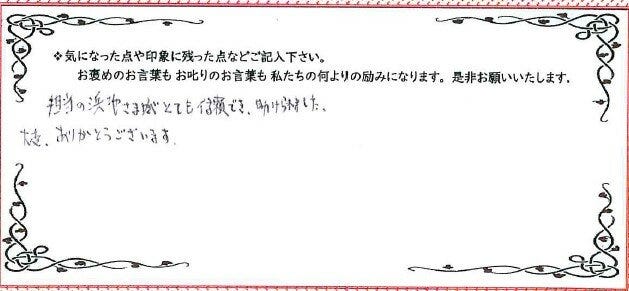 ❖気になった点や印象に残った点などご記入下さい。
お褒めのお言葉も お叱りのお言葉も 私たちの何よりの励みになります。是非お願いいたします。
担当の浜さまがとても信頼でき、助けられました、
ありがとうございます。